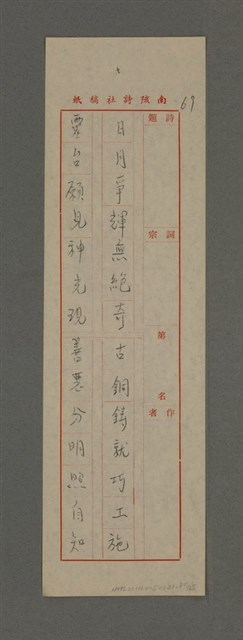 南陂詩社稿紙
詩題
詞宗
第 名
作者
日月爭輝無絕奇 古銅鑄就巧工施
台願見神光現 善惡分明照自知